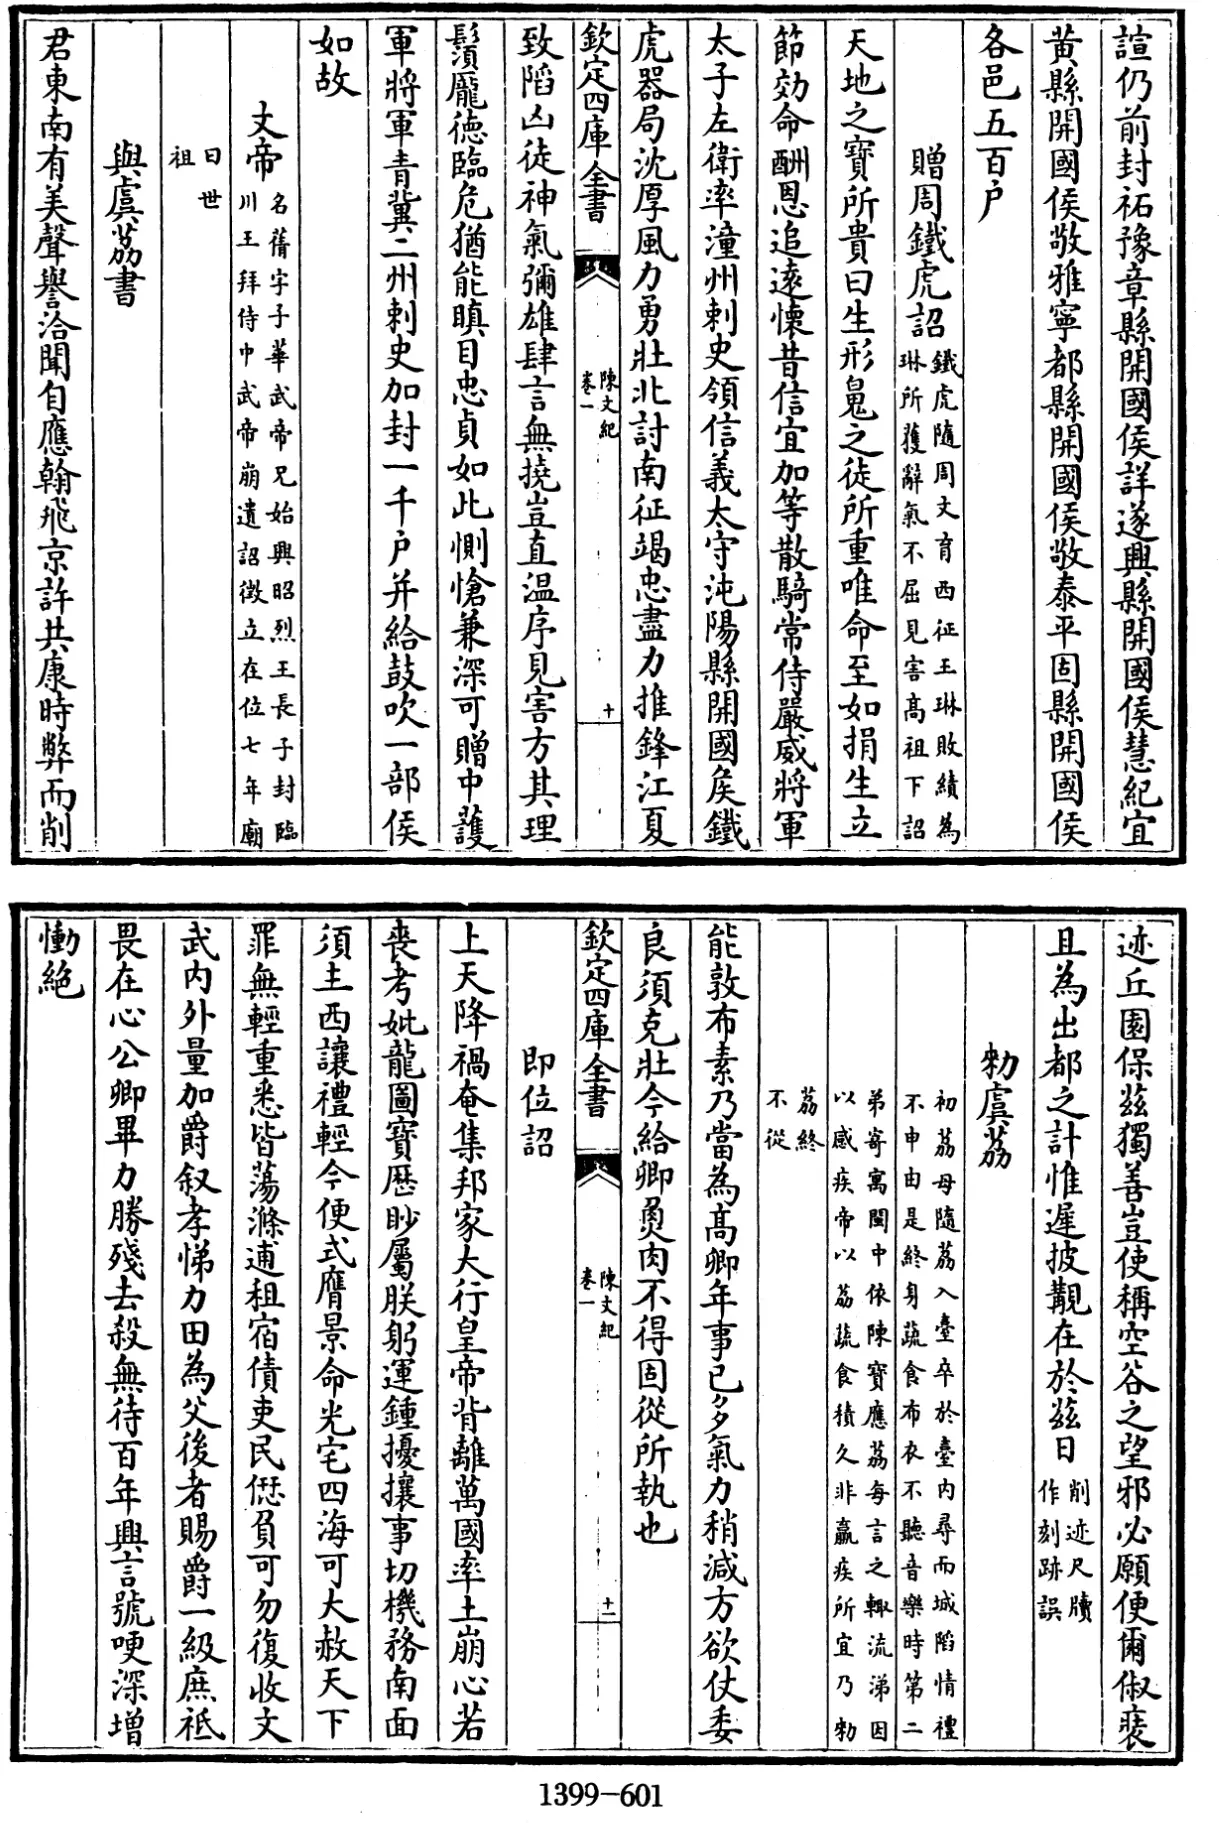 諠仍前封祏豫章縣開國侯詳遂興縣開國侯慧紀宜
黄縣開國侯敬雅寧都縣開國侯敬泰平固縣開國侯
各邑五百户
贈周鐵虎詔
鐵虎隨周文育西征王琳敗績為
琳所獲辭氣不屈見害髙祖下詔
天地之寶所貴曰生形䰟之徒所重唯命至如捐生立
節効命酬恩追遠懷昔信宜加等散騎常侍嚴威將軍
太子左衛率潼州刺史領信義太守沌陽縣開國矦鐵
虎器局沈厚風力勇壯北討南征竭忠盡力推鋒江夏
欽定四庫全書
陳文紀
卷一
十
致陷凶徒神氣彌雄肆言無撓豈直温序見害方其理
鬚龎德臨危猶能瞋目忠貞如此惻愴兼深可贈中護
軍將軍青冀二州刺史加封一千户并給鼓吹一部侯
如故
文帝
名蒨字子華武帝兄始興昭烈王長子封臨
川王拜侍中武帝崩遺詔徴立在位七年廟
曰世
祖
與虞荔書
君東南有美聲譽洽聞自應翰飛京許共康時弊而削
迹丘園保兹獨善豈使稱空谷之望邪必願便爾俶裝
且為出都之計惟遲披覯在於兹日
削迹尺牘
作刻跡誤
勑虞荔
初荔母隨荔入臺卒於臺内尋而城陷情禮
不申由是終身蔬食布衣不聽音樂時第二
弟寄寓閩中依陳寶應荔每言之輙流涕因
以感疾帝以荔蔬食積久非羸疾所宜乃勑
荔終
不從
能敦布素乃當為髙卿年事已多氣力稍減方欲仗委
良須克壯今給卿魚肉不得固從所執也
欽定四庫全書
陳文紀
卷一
十一
即位詔
上天降禍奄集邦家大行皇帝背離萬國率土崩心若
喪考妣龍圖寶厯眇屬朕躬運鍾擾攘事切機務南面
須主西讓禮輕今便式膺景命光宅四海可大赦天下
罪無輕重悉皆蕩滌逋租宿債吏民愆負可勿復收文
武内外量加爵叙孝悌力田為父後者賜爵一級庶祗
畏在心公卿畢力勝殘去殺無待百年興言號哽深增
慟絶
1399-601